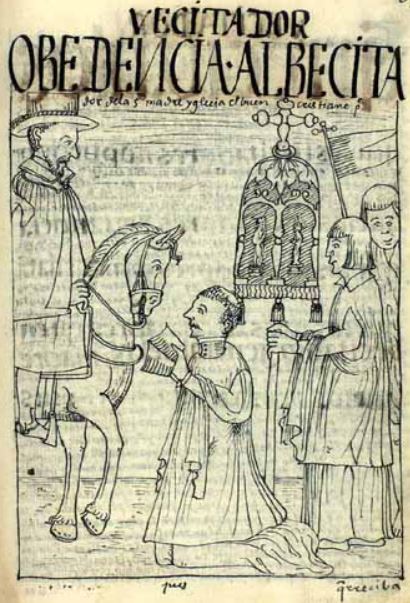 VECITADOR
OBEDENCIA · AL BECITA
dor dela s madre yglecia el buen cristiano p
pues
q̃ reciba